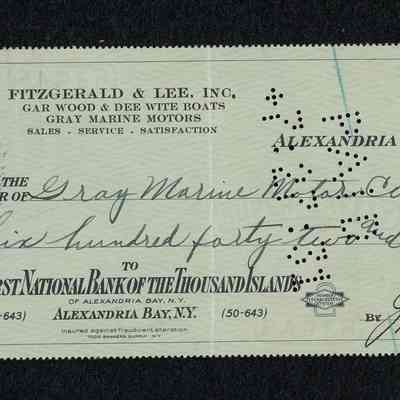 FITZGERALD & LEE, INC.
GAR WOOD & DEE WITE BOATS
GRAY MARINE MOTORS
SALES - SERVICE - SATISFACTION
ALEXANDRIA
THE
R OF Gray Marine Motor Co
Six hundred forty two and
TO
RST NATIONAL BANK OF THE THOUSAND ISLANDS
OF ALEXANDRIA BAY, N.Y.
-643) ALEXANDRIA BAY, N.Y. (50-643)
Insured against fraudulent alteration
BY